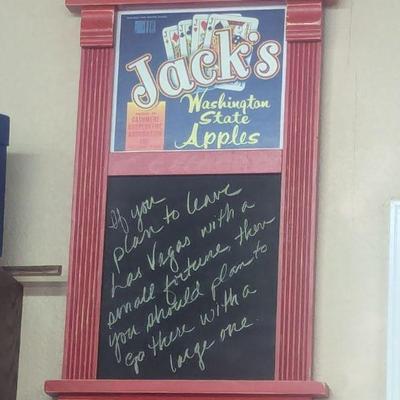 Jack's
Washington
State
Apples
CASHMERE
If you
plan to leave
Las Vegas with a
small fortune, then
you should plan to
go there with a
large one.